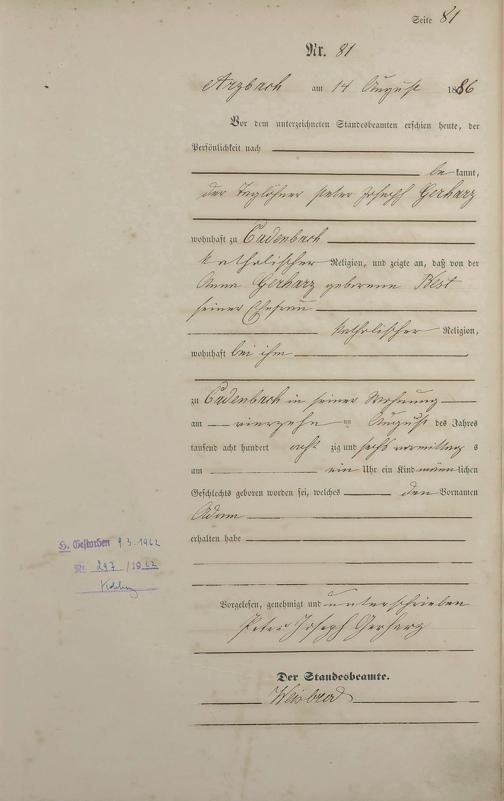 Seite 81
Nr. 81
Arzbach am 14 August 1886
Vor dem unterzeichneten Standesbeamten erschien heute, der
Persönlichkeit nach
be kannt,
der Taglöhner Peter Joseph Gerharz
wohnhaft zu Cadenbach
katholischer Religion, und zeigte an, daß von der
Anna Gerharz geborene Best
seiner Ehefrau
katholischer Religion,
wohnhaft bei ihm
zu Cadenbach in seiner Wohnung
am vierzehn ten August des Jahres
tausend acht hundert acht zig und sechs vormittag s
um ein Uhr ein Kind männ lichen
Geschlechts geboren worden sei, welches den Vornamen
Adam
erhalten habe
H. Gestorben 9.3.1962
Nr. 247 /1962
Vorgelesen, genehmigt und unterschrieben
Peter Joseph Gerharz
Der Standesbeamte.
Weisbrod